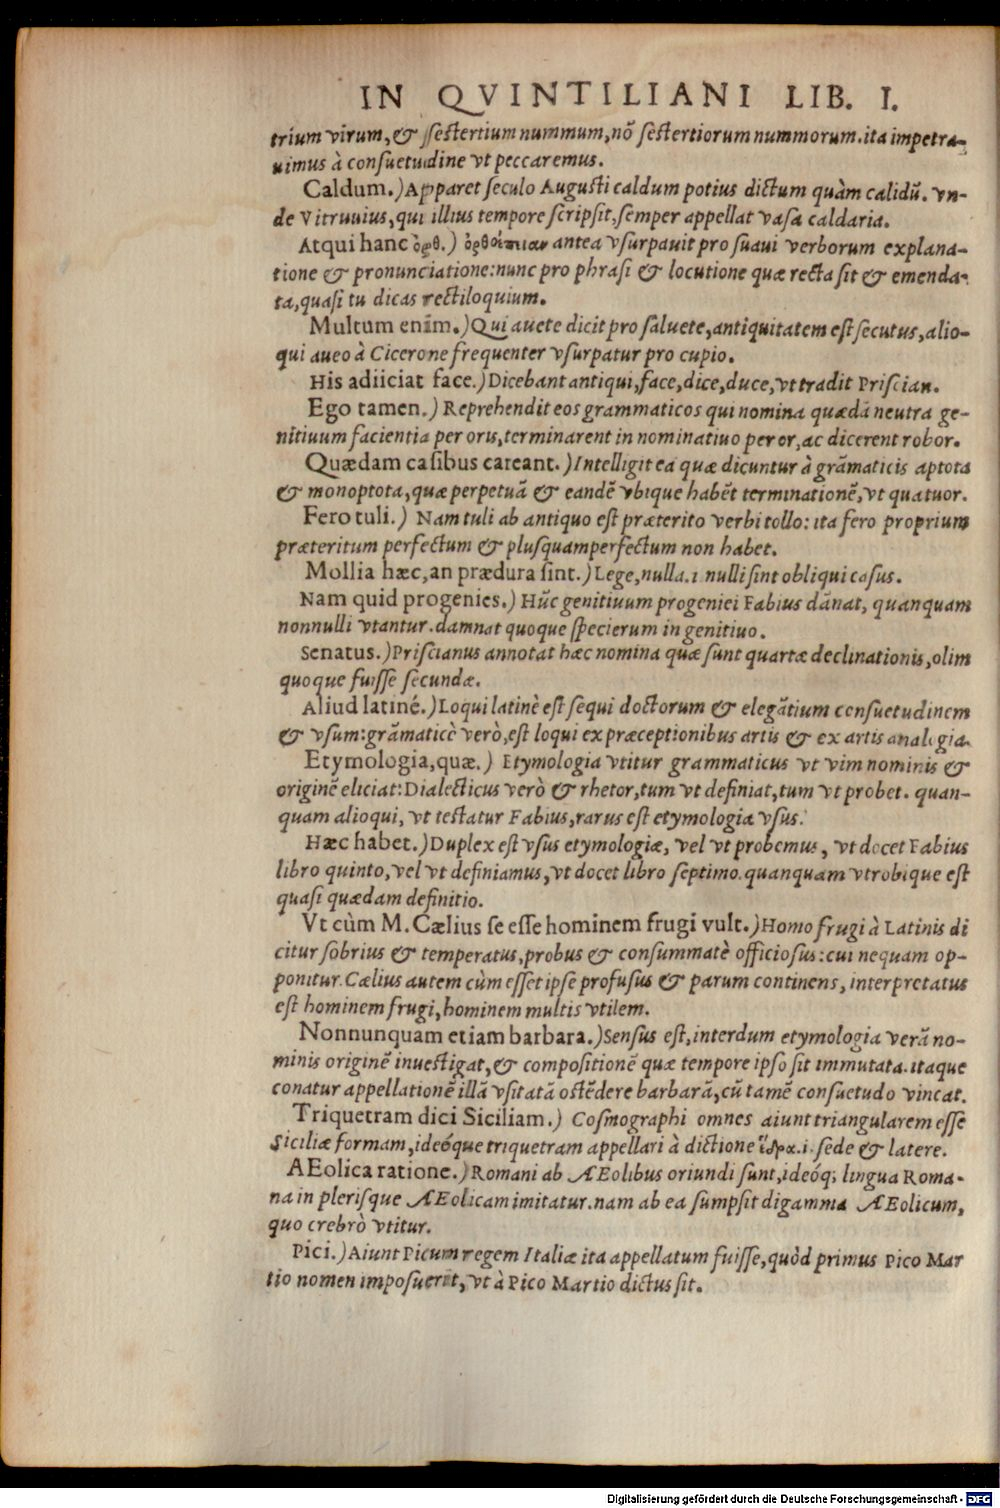 IN QVINTILIANI LIB. I.
trium virum, & sestertium nummum, nõ sestertiorum nummorum. ita impetra-
uimus à consuetudine vt peccaremus.
Caldum.) Apparet seculo Augusti caldum potius dictum quàm calidũ. vn-
de Vitruuius, qui illius tempore scripsit, semper appellat vasa caldaria.
Atqui hanc ὀρθ.) ὀρθοέπειαν antea vsurpauit pro suaui verborum explana-
tione & pronunciatione: nunc pro phrasi & locutione quæ recta sit & emenda-
ta, quasi tu dicas rectiloquium.
Multum enim.) Qui auete dicit pro saluete, antiquitatem est secutus, alio-
qui aueo à Cicerone frequenter vsurpatur pro cupio.
His adiiciat face.) Dicebant antiqui, face, dice, duce, vt tradit Priscian.
Ego tamen.) Reprehendit eos grammaticos qui nomina quædã neutra ge-
nitiuum facientia per oris, terminarent in nominatiuo per or, ac dicerent robor.
Quædam casibus careant.) Intelligit ea quæ dicuntur à grãmaticis aptota
& monoptota, quæ perpetuã & eandẽ vbique habẽt terminationẽ, vt quatuor.
Fero tuli.) Nam tuli ab antiquo est præterito verbi tollo: ita fero proprium
præteritum perfectum & plusquamperfectum non habet.
Mollia hæc, an prædura sint.) Lege, nulla. i nulli sint obliqui casus.
Nam quid progenies.) Hũc genitiuum progeniei Fabius dãnat, quanquam
nonnulli vtantur. damnat quoque specierum in genitiuo.
Senatus.) Priscianus annotat hæc nomina quæ sunt quartæ declinationis, olim
quoque fuisse secundæ.
Aliud latiné.) Loqui latinè est sequi doctorum & elegãtium consuetudinem
& vsum: grãmaticè verò, est loqui ex præceptionibus artis & ex artis analogia.
Etymologia, quæ.) Etymologia vtitur grammaticus vt vim nominis &
originẽ eliciat: Dialecticus verò & rhetor, tum vt definiat, tum vt probet. quan-
quam alioqui, vt testatur Fabius, rarus est etymologiæ vsus.
Hæc habet.) Duplex est vsus etymologiæ, vel vt probemus, vt docet Fabius
libro quinto, vel vt definiamus, vt docet libro septimo. quanquam vtrobique est
quasi quædam definitio.
Vt cùm M. Cælius se esse hominem frugi vult.) Homo frugi à Latinis di
citur sobrius & temperatus, probus & consummatè officiosus: cui nequam op-
ponitur. Cælius autem cùm esset ipse profusus & parum continens, interpretatus
est hominem frugi, hominem multis vtilem.
Nonnunquam etiam barbara.) Sensus est, interdum etymologia verã no-
minis originẽ inuestigat, & compositionẽ quæ tempore ipso sit immutata. itaque
conatur appellationẽ illã vsitatã ostẽdere barbarã, cũ tamẽ consuetudo vincat.
Triquetram dici Siciliam.) Cosmographi omnes aiunt triangularem esse
Siciliæ formam, ideóque triquetram appellari à dictione ἕδρα. i. sede & latere.
AEolica ratione.) Romani ab AEolibus oriundi sunt, ideóq; lingua Roma-
na in plerisque AEolicam imitatur. nam ab ea sumpsit digamma AEolicum,
quo crebrò vtitur.
Pici.) Aiunt Picum regem Italiæ ita appellatum fuisse, quòd primus Pico Mar
tio nomen imposuerit, vt à Pico Martio dictus sit.
Digitalisierung gefördert durch die Deutsche Forschungsgemeinschaft - DFG